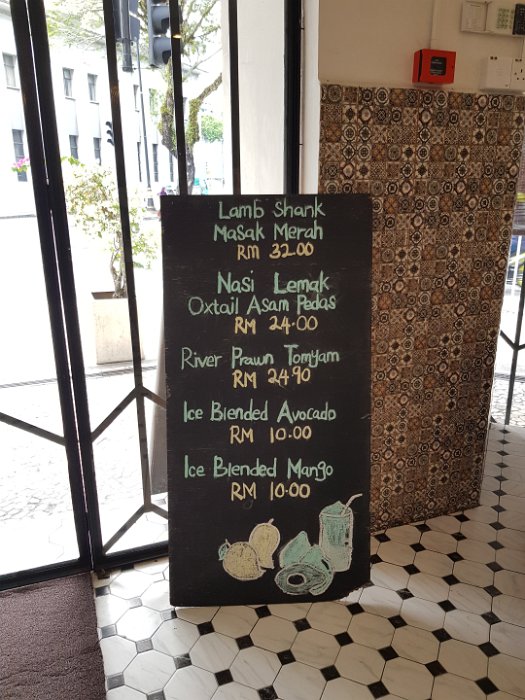 Lamb Shank
Masak Merah
RM 32.00
Nasi Lemak
Oxtail Asam Pedas
RM 24.00
River Prawn Tomyam
RM 24.90
Ice Blended Avocado
RM 10.00
Ice Blended Mango
RM 10.00